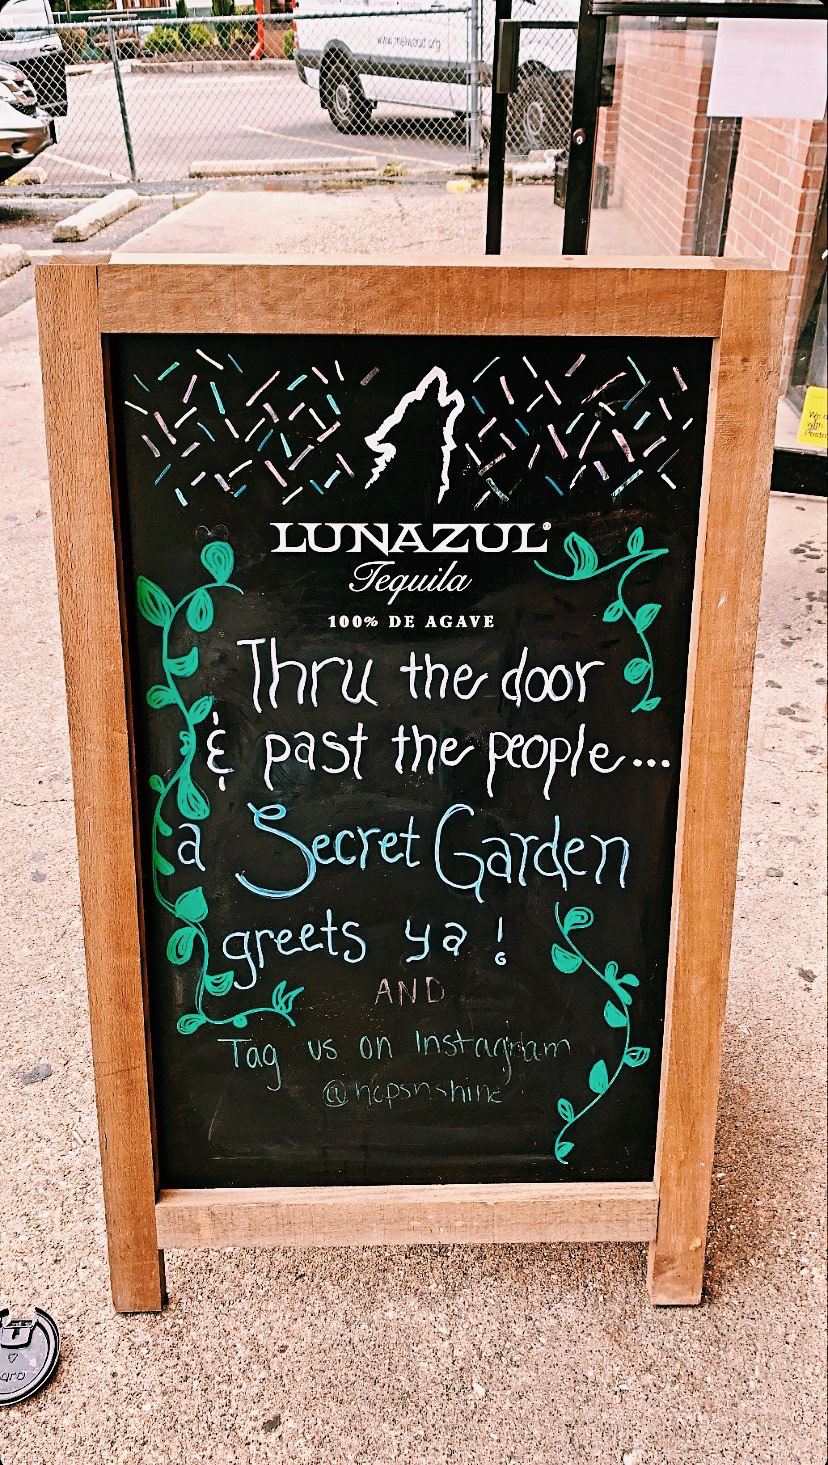 www.melwood.org
LUNAZUL®
Tequila
100% DE AGAVE
Thru the door
& past the people...
a Secret Garden
greets ya!
AND
Tag us on Instagram
@hopsnshine